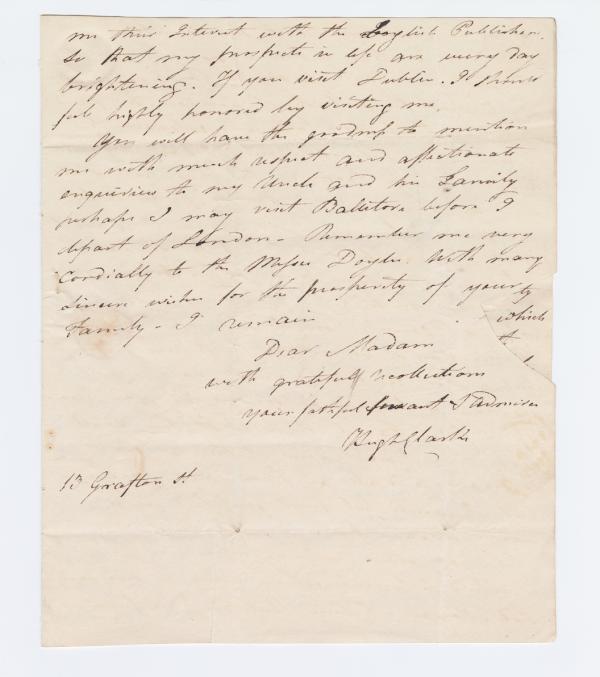 me their Interest with the English Publishers.
So that my prospects in life are every day
brightening. If you visit Dublin. I should
feel highly honored by visiting me.
You will have the goodness to mention
me with much respect and affectionate
enquiries to my Uncle and his Family
perhaps I may visit Ballitore before I
depart of London - Remember me very
Cordially to the Misses Doyle. With many
sincere wishes for the prosperity of your
Family - I remain
which
Dear Madam
with gratefull recollections
your faithful servant & Admirer
Hugh Clarke
13 Grafton St